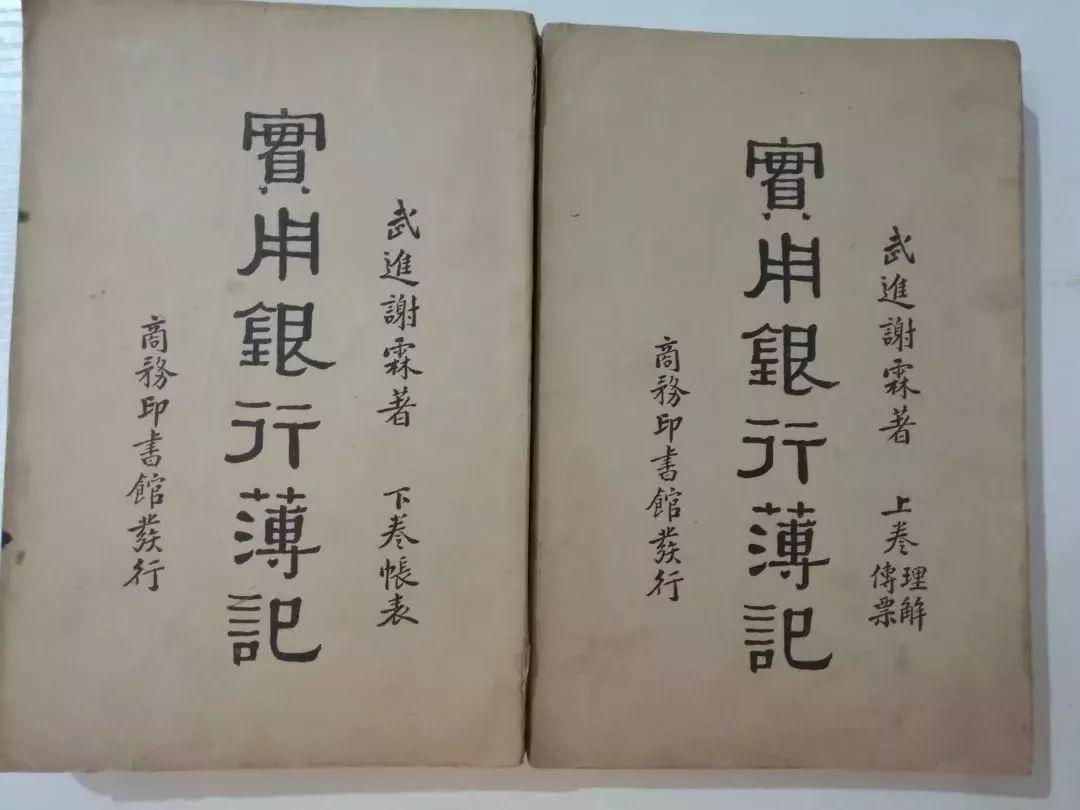 武進謝霖著 上卷 理解
傳票
實用銀行薄記
商務印書館發行
武進謝霖著 下卷帳表
實用銀行薄記
商務印書館發行